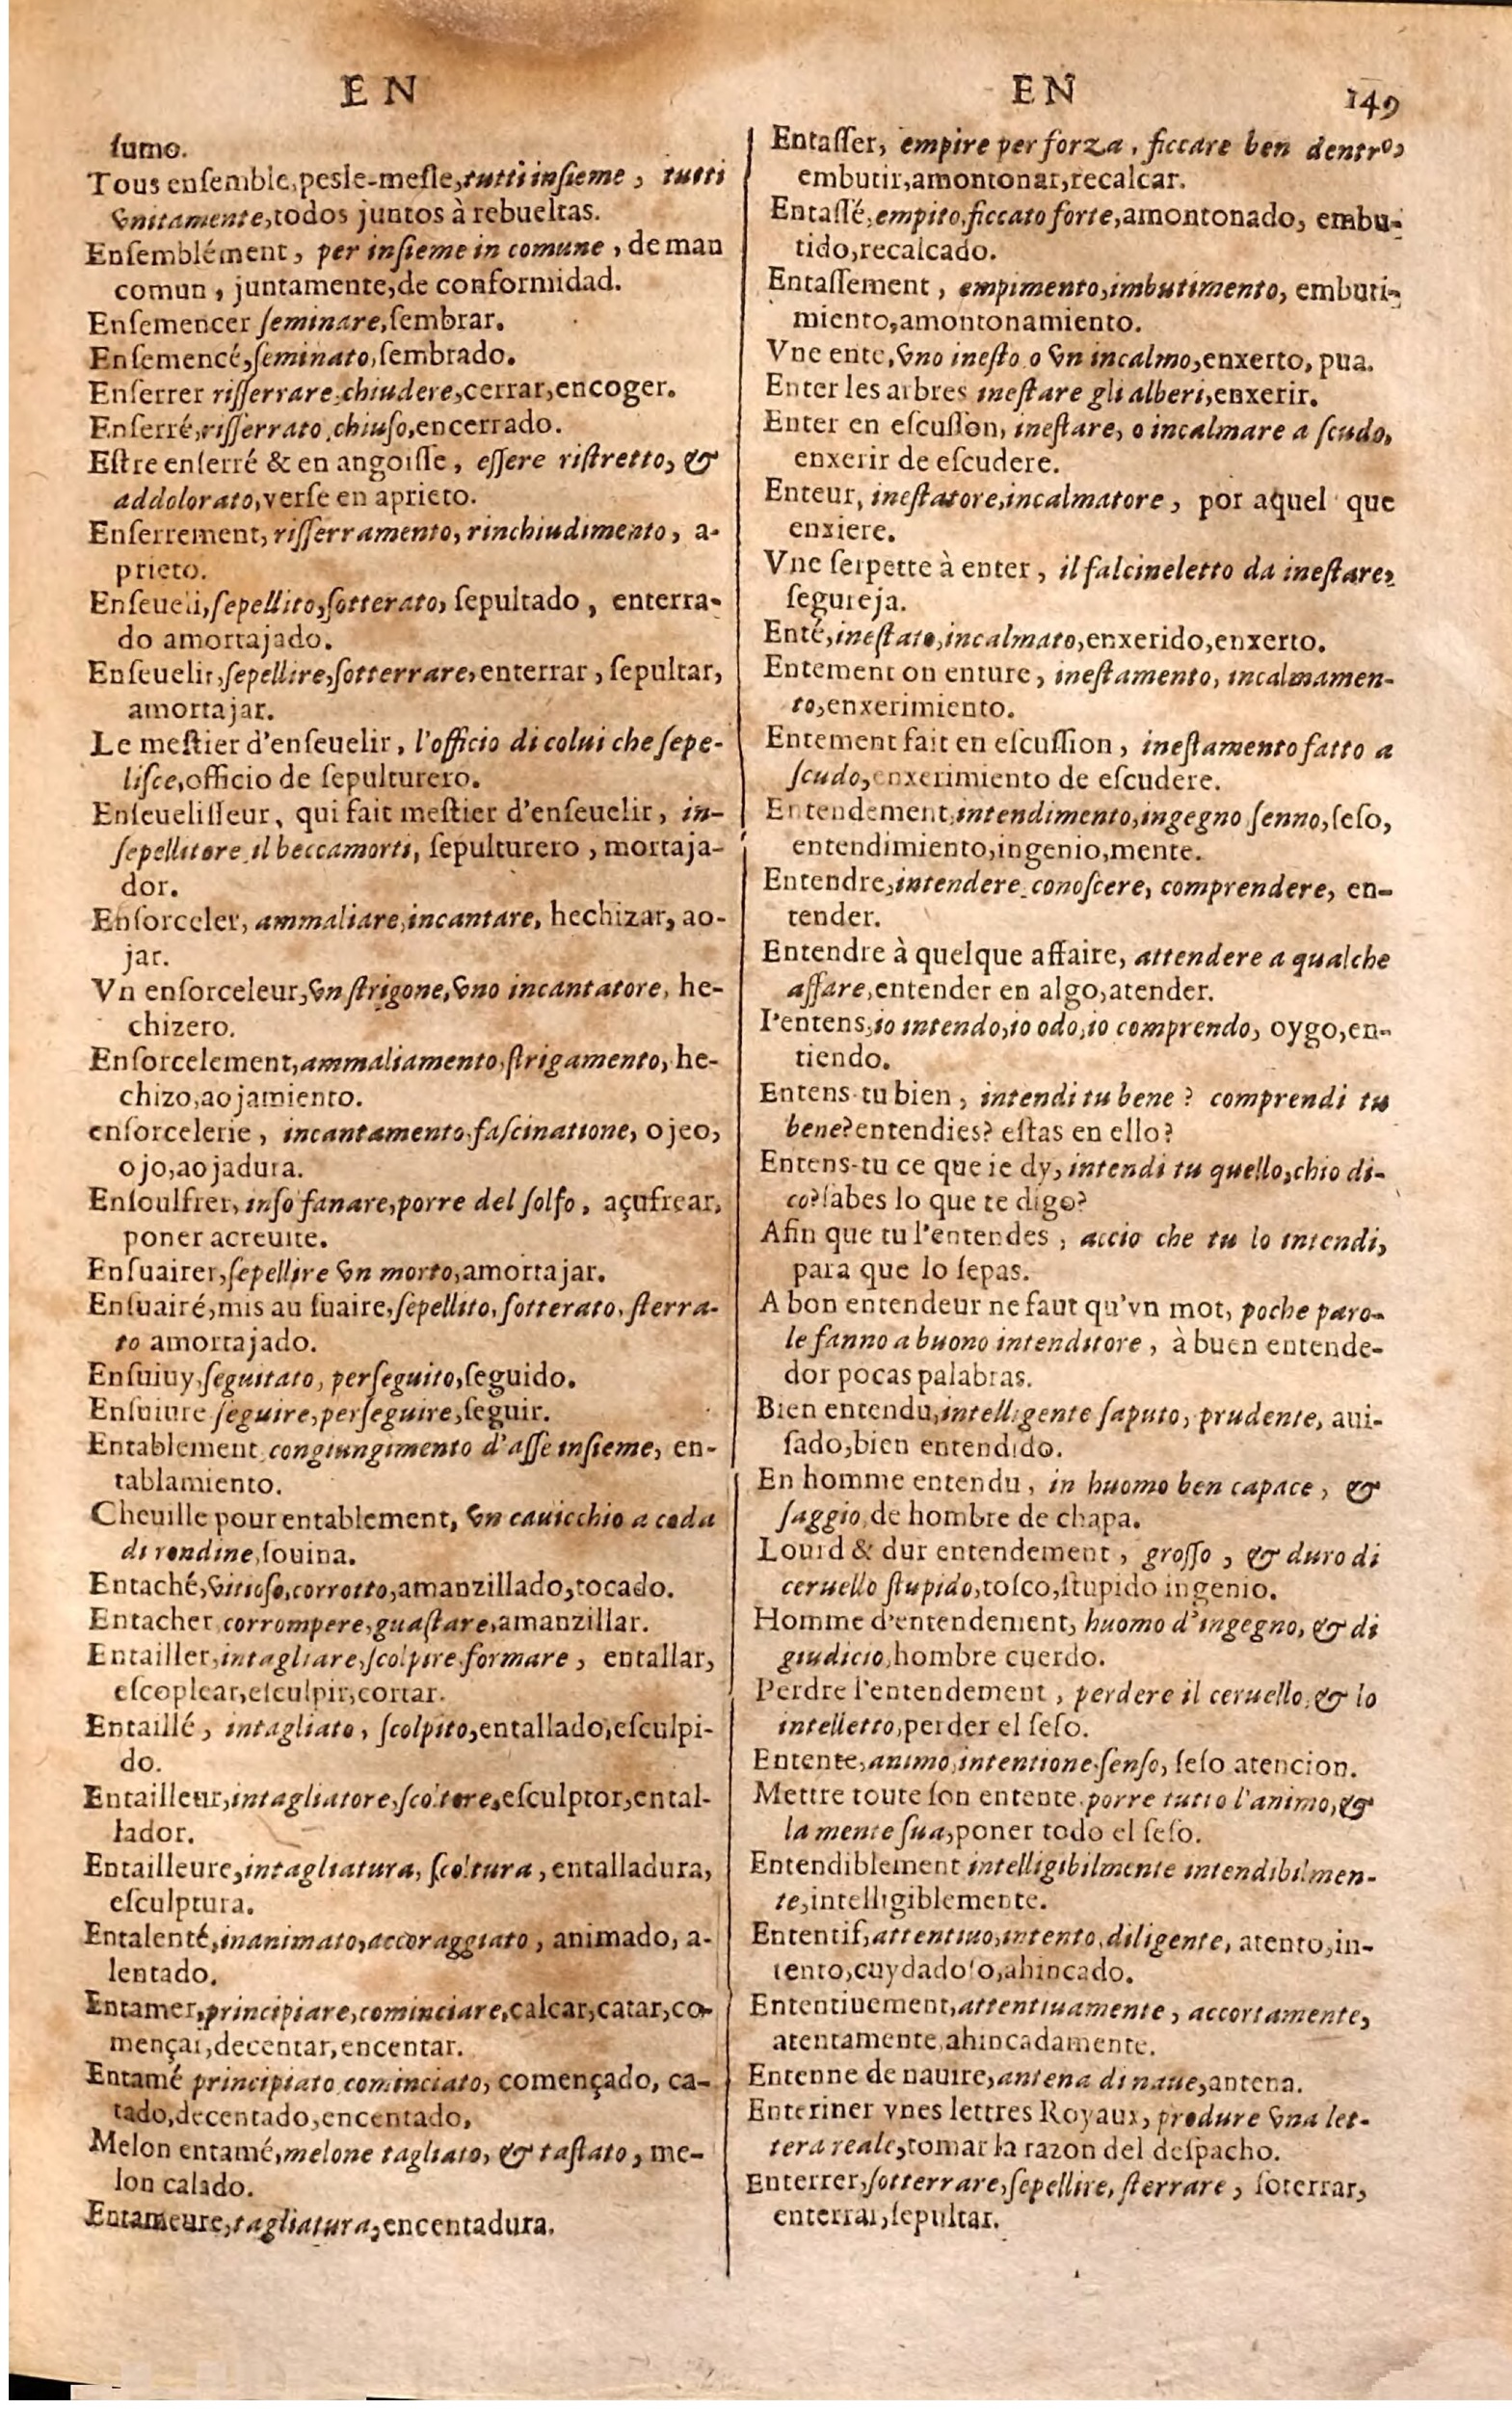 E N
ſumo.
Tous enſemble, peſle-meſle, tutti inſieme, tutti
vnitamente, todos juntos à rebueltas.
Enſemblément, per inſieme in comune, de man
comun, juntamente, de conformidad.
Enſemencer ſeminare, ſembrar.
Enſemencé, ſeminato, ſembrado.
Enſerrer riſſerrare, chiudere, cerrar, encoger.
Enſerré, riſſerrato, chiuſo, encerrado.
Eſtre enſerré & en angoiſſe, eſſere riſtretto, &
addolorato, verſe en aprieto.
Enſerrement, riſſerramento, rinchiudimento, a-
prieto.
Enſeueli, ſepellito, ſotterato, ſepultado, enterra-
do amortajado.
Enſeuelir, ſepellire, ſotterrare, enterrar, ſepultar,
amortajar.
Le meſtier d'enſeuelir, l'officio di colui che ſepe-
liſce, officio de ſepulturero.
Enſeueliſſeur, qui fait meſtier d'enſeuelir, in-
ſepellitore, il beccamorti, ſepulturero, mortaja-
dor.
Enſorceler, ammaliare, incantare, hechizar, ao-
jar.
Vn enſorceleur, vn ſtrigone, vno incantatore, he-
chizero.
Enſorcelement, ammaliamento, ſtrigamento, he-
chizo, aojamiento.
enſorcelerie, incantamento, faſcinatione, ojeo,
ojo, aojadura.
Enſoulfrer, inſo fanare, porre del ſolfo, açufrear,
poner acreuite.
Enſuairer, ſepellire vn morto, amortajar.
Enſuairé, mis au ſuaire, ſepellito, ſotterato, ſterra-
to amortajado.
Enſuiuy, ſeguitato, perſeguito, ſeguido.
Enſuiure ſeguire, perſeguire, ſeguir.
Entablement, congiungimento d'aſſe inſieme, en-
tablamiento.
Cheuille pour entablement, vn cauicchio a coda
di rondine, ſouina.
Entaché, vitioſo, corrotto, amanzillado, tocado.
Entacher corrompere, guaſtare, amanzillar.
Entailler, intagliare, ſcolpire, formare, entallar,
eſcoplear, eſculpir, cortar.
Entaillé, intagliato, ſcolpito, entallado, eſculpi-
do.
Entailleur, intagliatore, ſcoltore, eſculptor, ental-
lador.
Entailleure, intagliatura, ſcoltura, entalladura,
eſculptura.
Entalenté, inanimato, accoraggiato, animado, a-
lentado.
Entamer, principiare, cominciare, calcar, catar, co-
mençar, decentar, encentar.
Entamé principiato cominciato, començado, ca-
tado, decentado, encentado,
Melon entamé, melone tagliato, & taſtato, me-
lon calado.
Entameure, tagliatura, encentadura.
E N 149
Entaſſer, empire per forza, ficcare ben dentro,
embutir, amontonar, recalcar.
Entaſſé, empito, ficcato forte, amontonado, embu-
tido, recalcado.
Entaſſement, empimento, imbutimento, embuti-
miento, amontonamiento.
Vne ente, vno ineſto o vn incalmo, enxerto, pua.
Enter les arbres ineſtare gli alberi, enxerir.
Enter en eſcuſſon, ineſtare, o incalmare a ſcudo,
enxerir de eſcudere.
Enteur, ineſtatore, incalmatore, por aquel que
enxiere.
Vne ſerpette à enter, il falcineletto da ineſtare,
ſegureja.
Enté, ineſtato, incalmato, enxerido, enxerto.
Entement on enture, ineſtamento, incalmamen-
to, enxerimiento.
Entement fait en eſcuſſion, ineſtamento fatto a
ſcudo, enxerimiento de eſcudere.
Entendement, intendimento, ingegno ſenno, ſeſo,
entendimiento, ingenio, mente.
Entendre, intendere, conoſcere, comprendere, en-
tender.
Entendre à quelque affaire, attendere a qualche
affare, entender en algo, atender.
I'entens, io intendo, io odo, io comprendo, oygo, en-
tiendo.
Entens-tu bien, intendi tu bene? comprendi tu
bene? entendies? eſtas en ello?
Entens-tu ce que ie dy, intendi tu quello, chio di-
co? ſabes lo que te digo?
Afin que tu l'entendes, accio che tu lo intendi,
para que lo ſepas.
A bon entendeur ne faut qu'vn mot, poche paro-
le fanno a buono intenditore, à buen entende-
dor pocas palabras.
Bien entendu, intelligente ſaputo, prudente, aui-
ſado, bien entendido.
En homme entendu, in huomo ben capace, &
ſaggio, de hombre de chapa.
Lourd & dur entendement, groſſo, & duro di
ceruello ſtupido, toſco, ſtupido ingenio.
Homme d'entendement, huomo d'ingegno, & di
giudicio, hombre cuerdo.
Perdre l'entendement, perdere il ceruello, & lo
intelletto, perder el ſeſo.
Entente, animo, intentione, ſenſo, ſeſo atencion.
Mettre toute ſon entente, porre tutto l'animo, &
la mente ſua, poner todo el ſeſo.
Entendiblement intelligibilmente intendibilmen-
te, intelligiblemente.
Ententif, attentiuo, intento, diligente, atento, in-
tento, cuydadoſo, ahincado.
Ententiuement, attentiuamente, accortamente,
atentamente, ahincadamente.
Entenne de nauire, antena di naue, antena.
Enteriner vnes lettres Royaux, produre vna let-
tera reale, tomar la razon del deſpacho.
Enterrer, ſotterrare, ſepellire, ſterrare, ſoterrar,
enterrar, ſepultar.